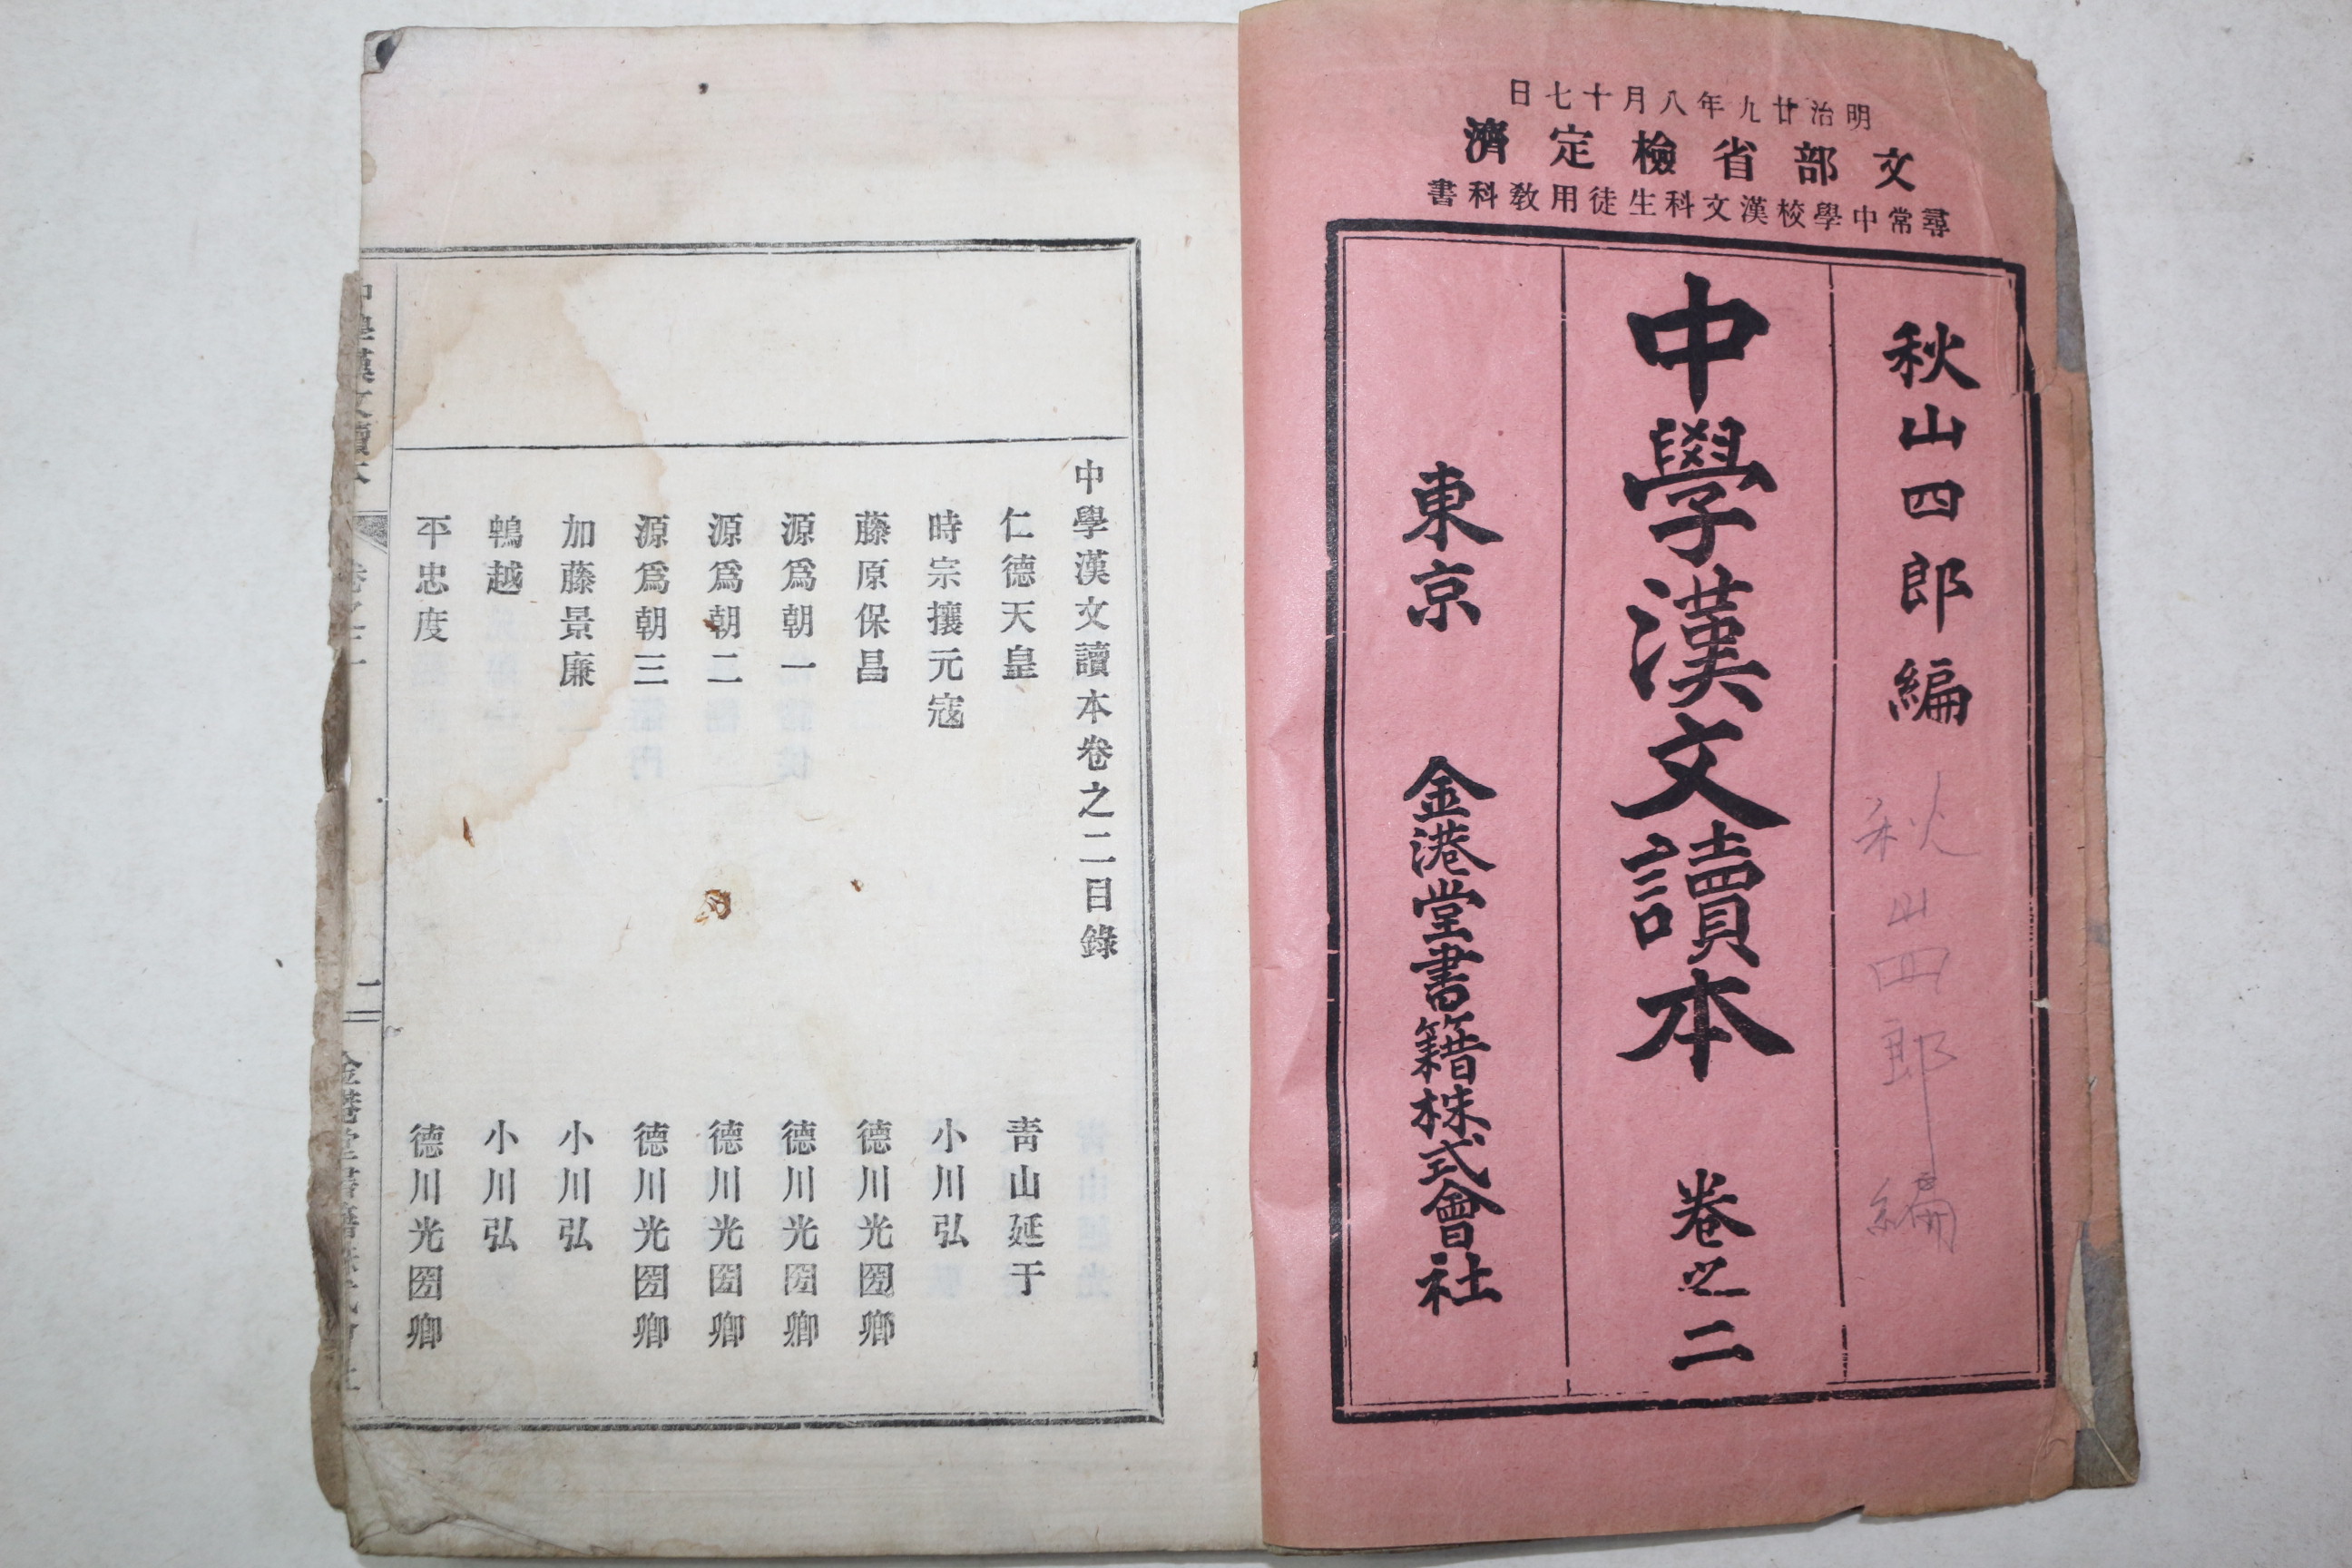 明治廿九年八月十七日
文部省檢定濟
尋常中學校漢文科生徒用敎科書
秋山四郎編
秋山四郎編
中學漢文讀本 卷之二
東京 金港堂書籍株式會社
中學漢文讀本卷之二目錄
仁德天皇 靑山延于
時宗攘元寇 小川弘
藤原保昌 德川光圀卿
源爲朝一 德川光圀卿
源爲朝二 德川光圀卿
源爲朝三 德川光圀卿
加藤景廉 小川弘
鵯越 小川弘
平忠度 德川光圀卿
中學漢文讀本 卷之二 一 金港堂書籍株式會社